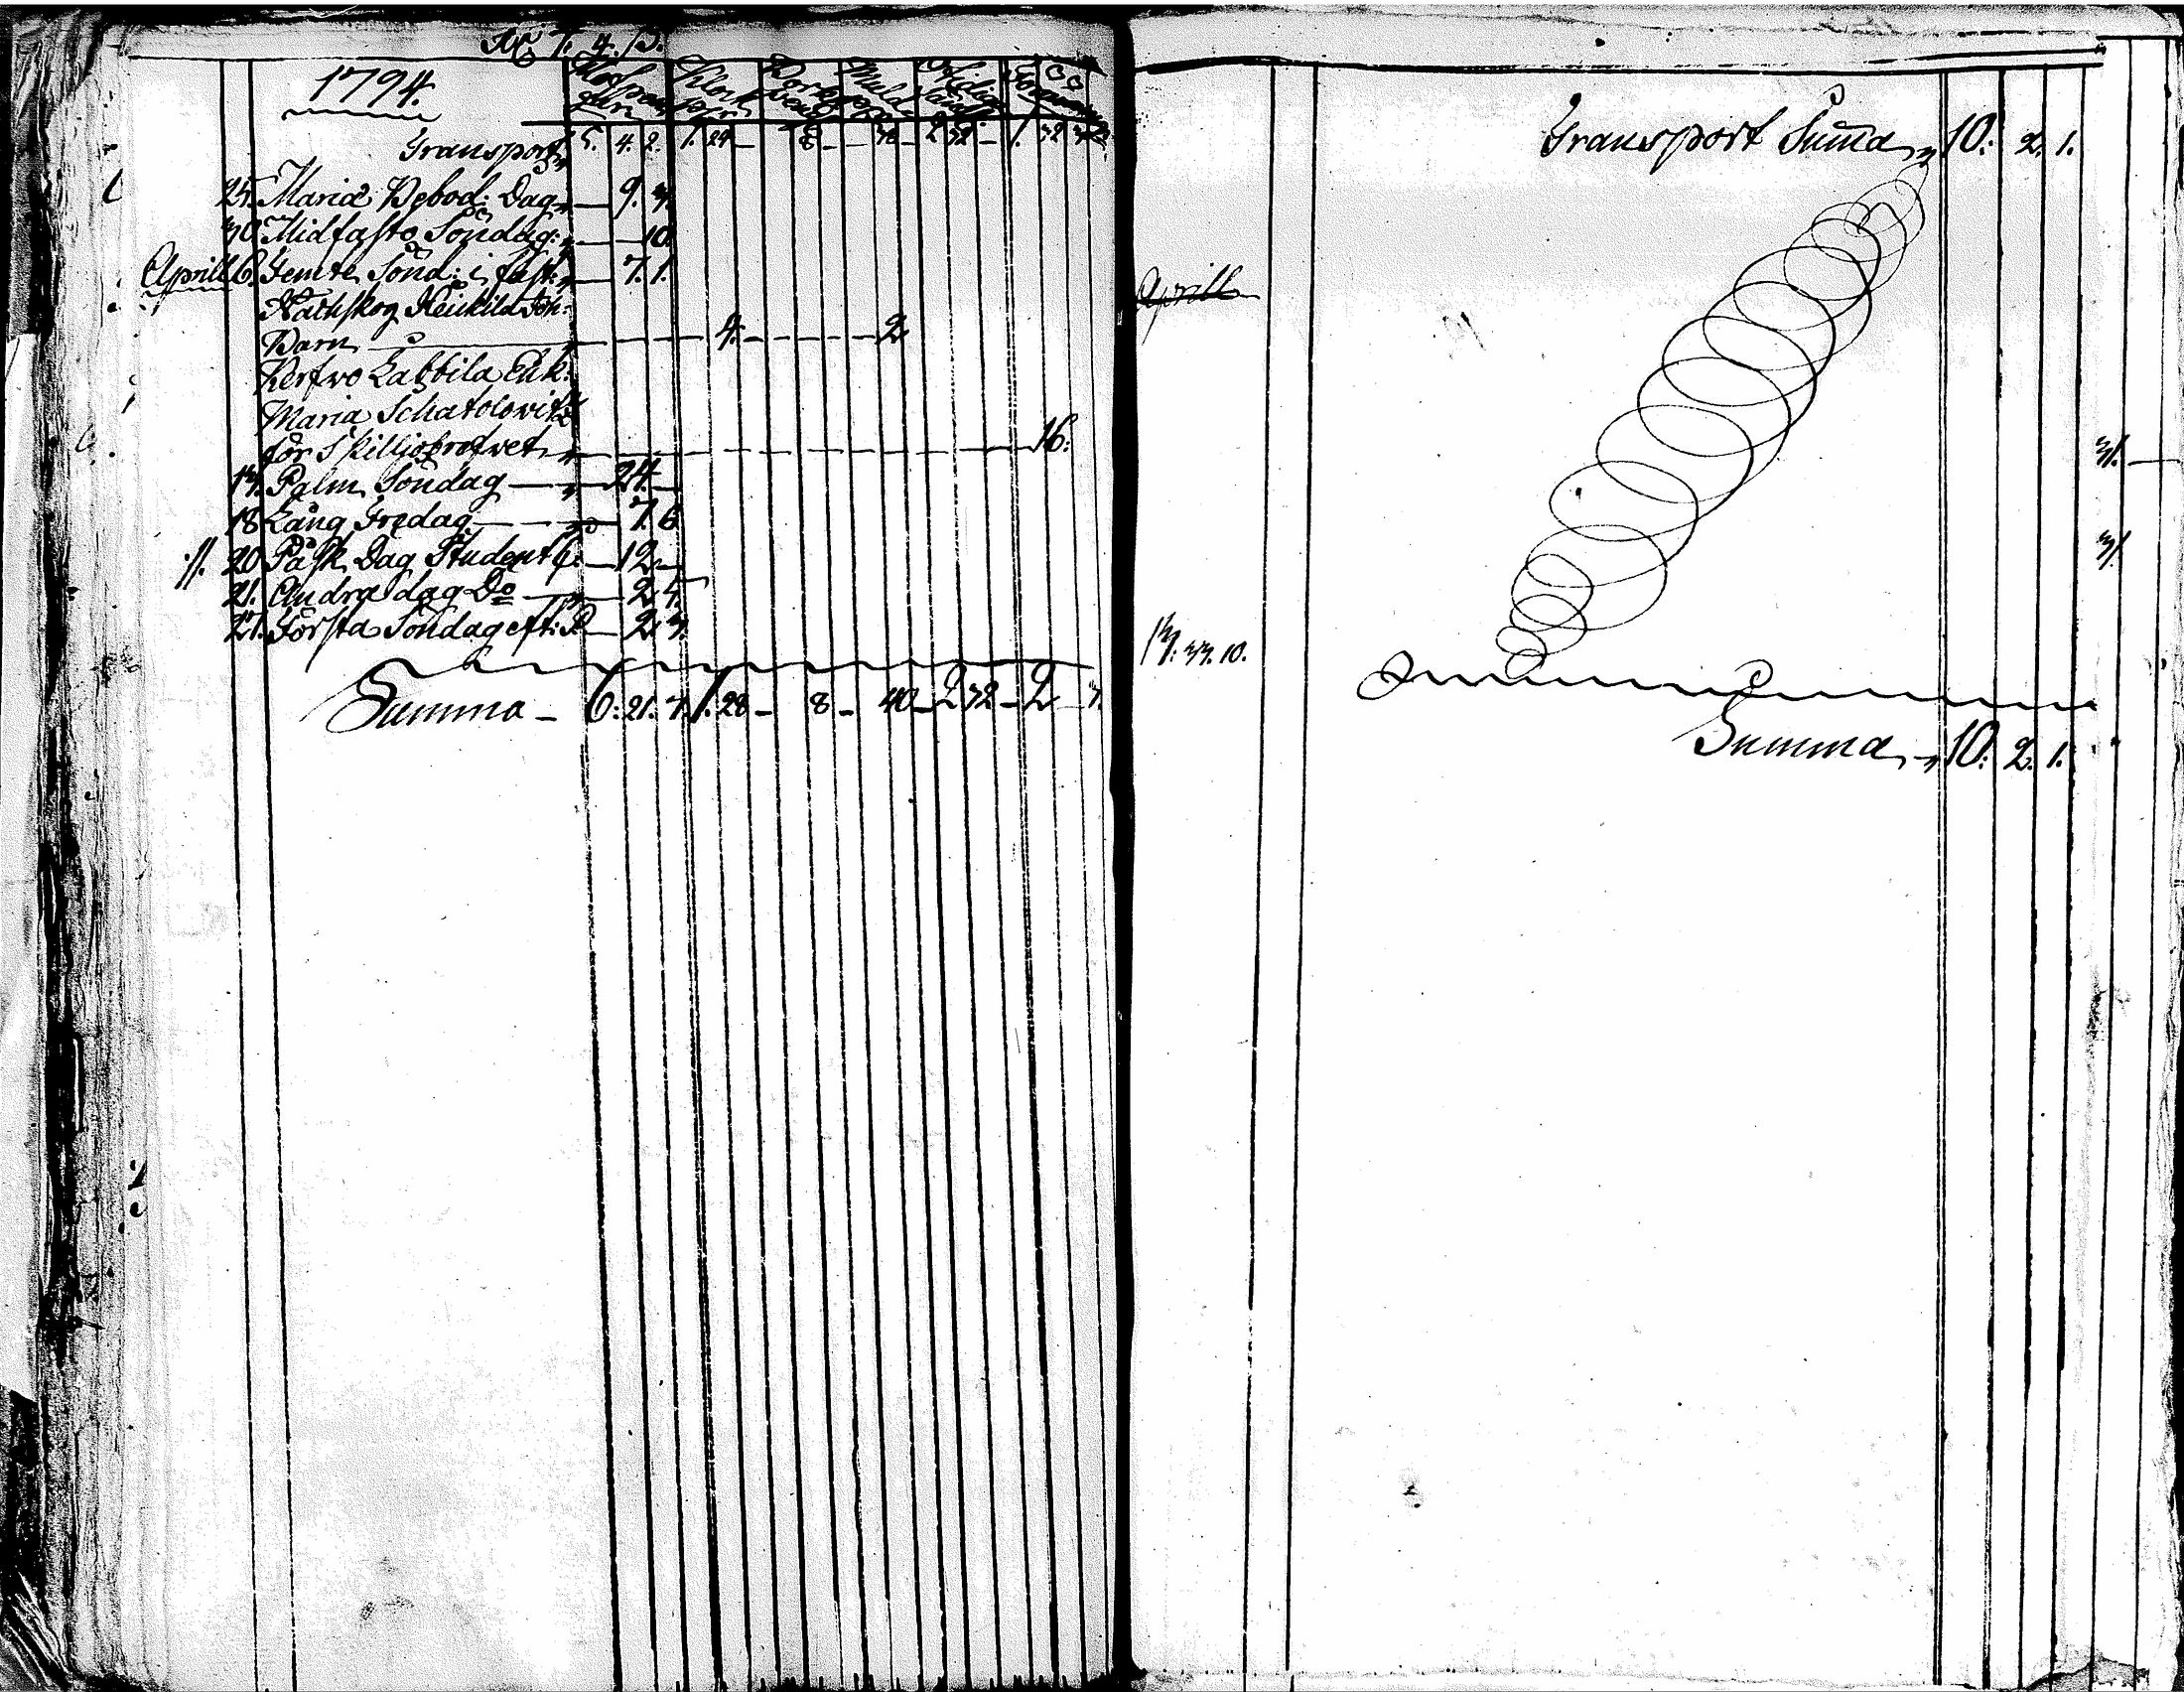 1794.
Transport 5. 4. 2. 1. 24 — 8 — 38 — 2 32 — 1. 32 3
25. Mariæ Bebod: Dag — 9. 3.
30. Midfasto Söndag: — 10
Aprill 6. Femte Sönd: i fast: — 7. 1.
Barn — 4. — 2
Kerfwo Labbila Enk:
Maria Schatolovitz
för Skilljobrefwet — 16:
13. Palm Söndag — 24 —
18 Lång Fredag — 7. 6
20 Påsk Dag Student — 12 —
21. Andra dag Do — 2 5.
27. Första Söndag eft: P — 2. 3.
Summa — 6: 21. 7. 1. 28 — 8 — 40 — 2 32 — 2 — 3.
Transport Suma 10: 2. 1.
Aprill
31. —
31.
13: 33. 10.
Summa 10: 2. 1.